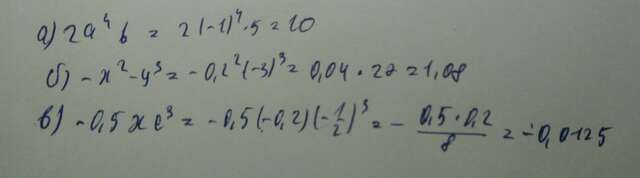 а) 2a⁴b = 2(-1)⁴·5 = 10
б) -x²-y³ = -0,2²(-3)³ = 0,04 · 27 = 1,08
в) -0,5xc³ = -0,5(-0,2)(-1/2)³ = - 0,5·0,2/8 = -0,0125